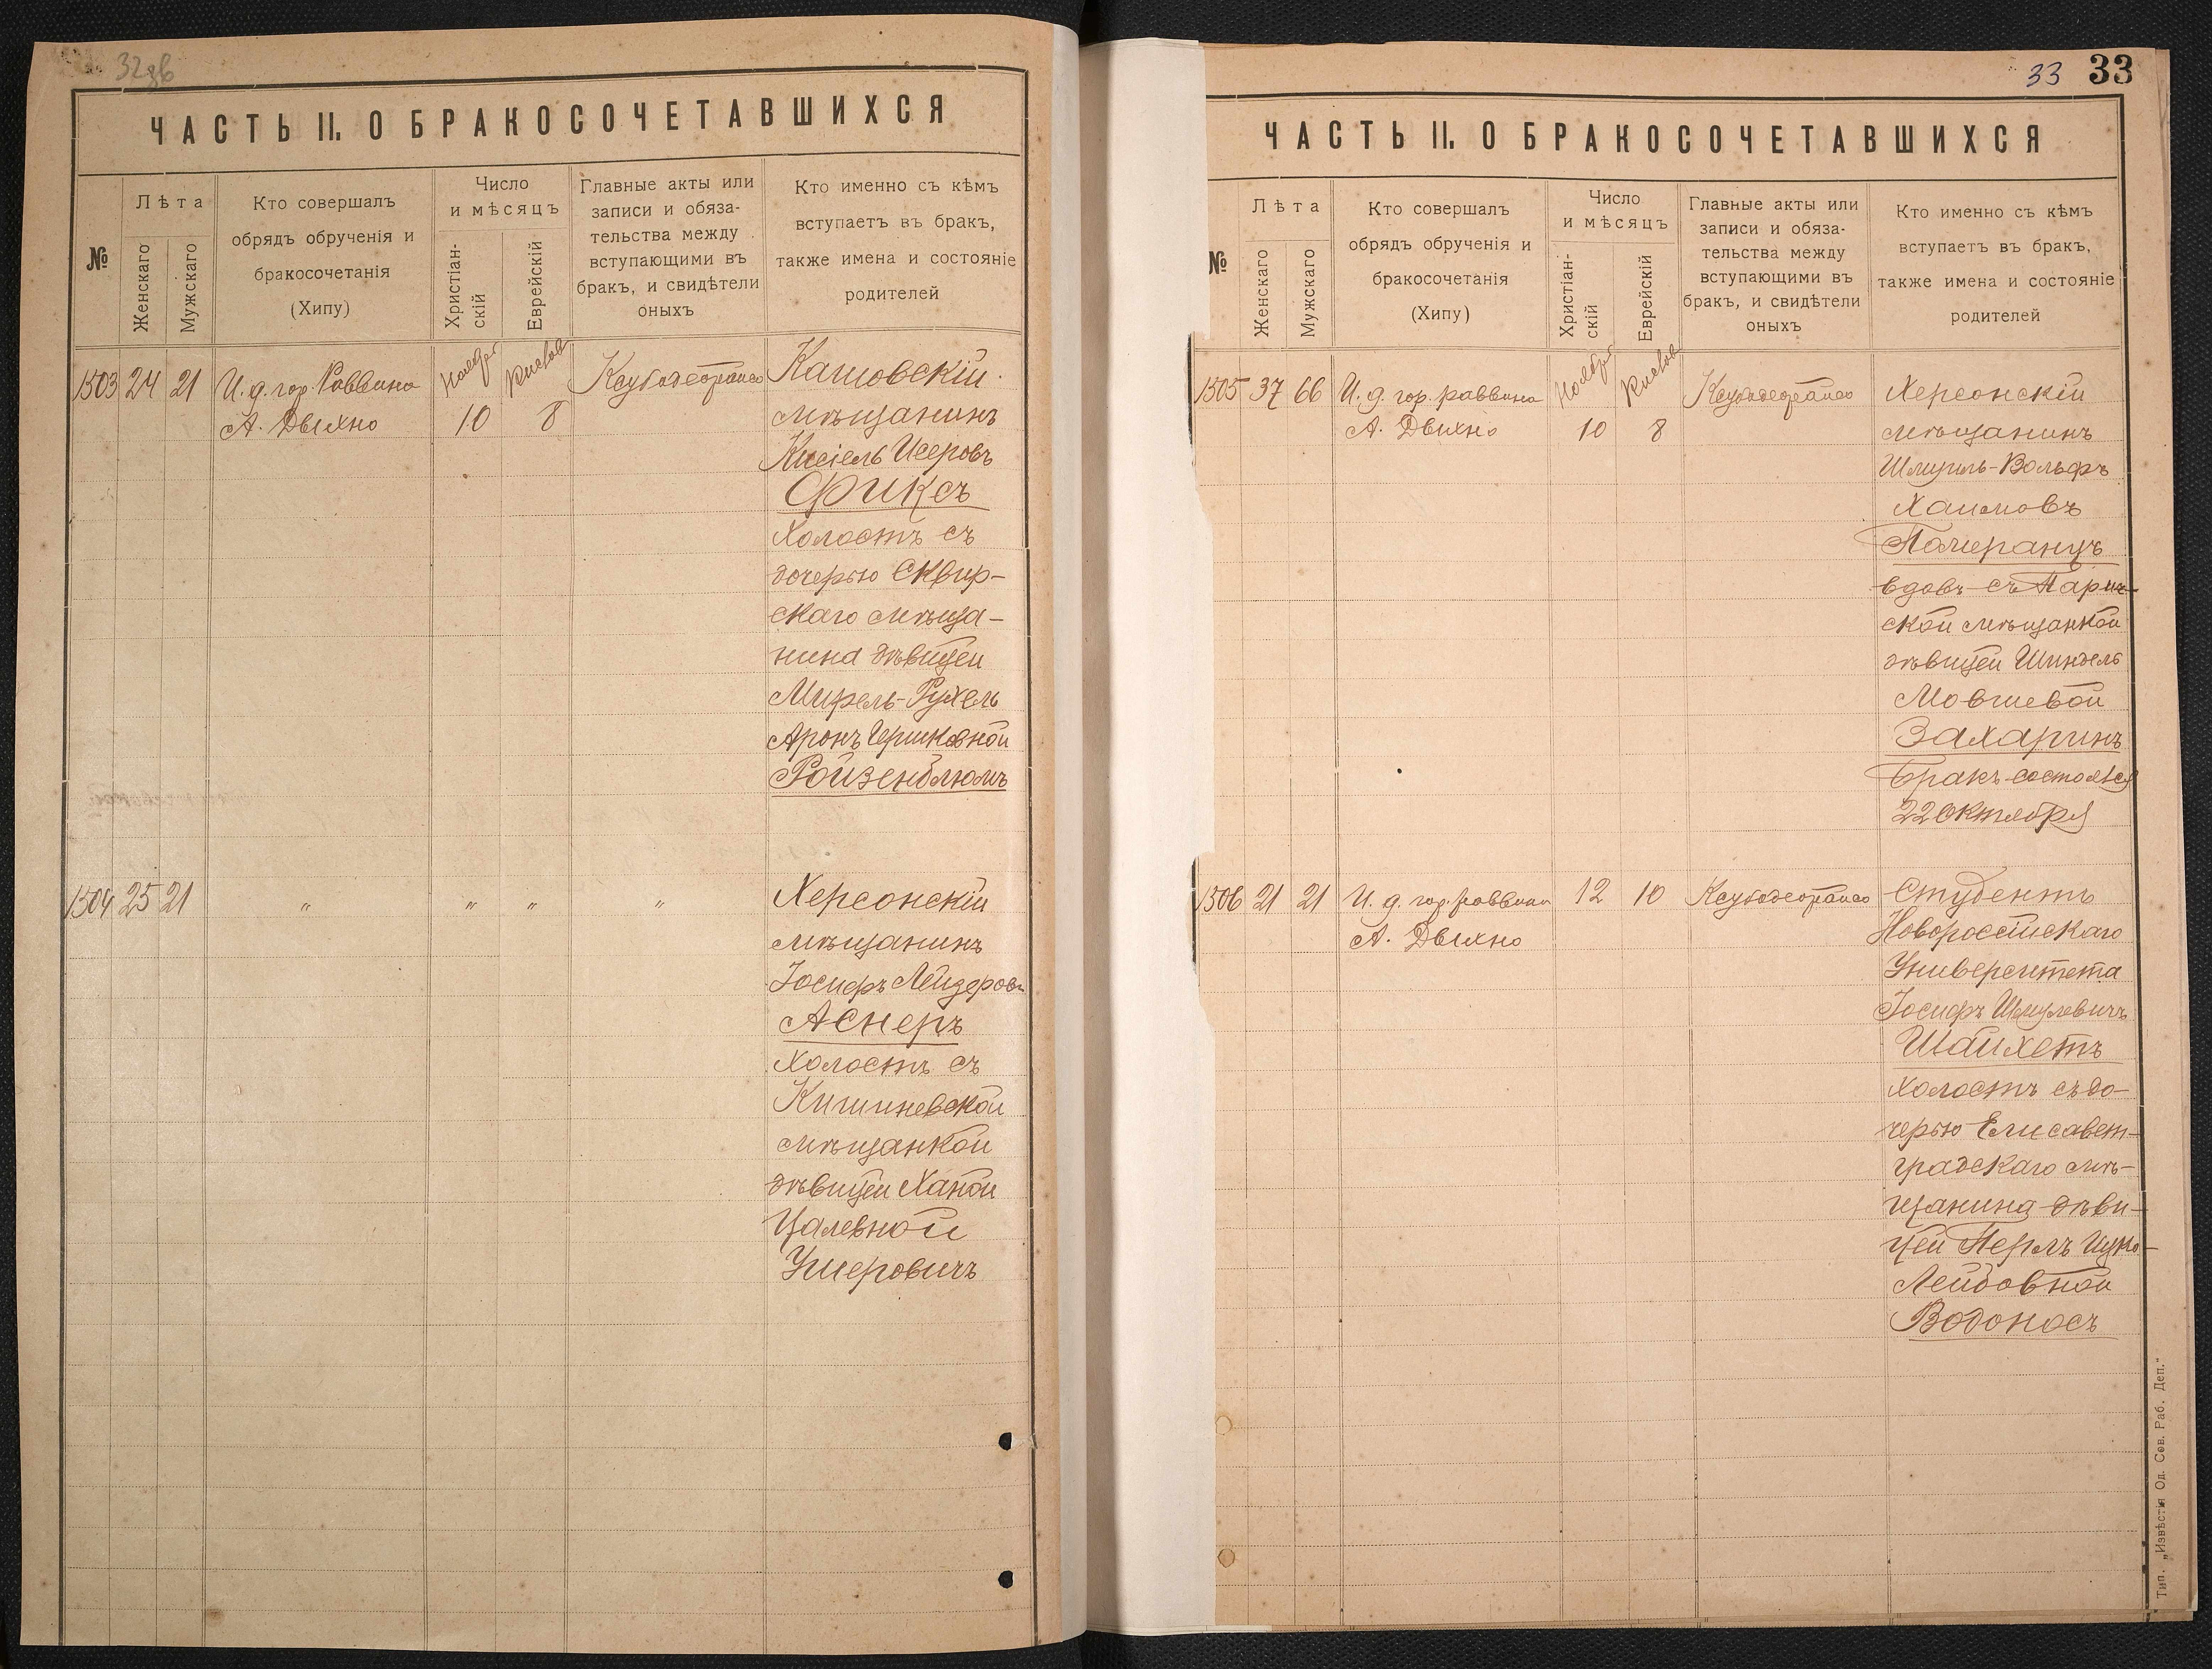 32зв
ЧАСТЬ II. О БРАКОСОЧЕТАВШИХСЯ
№
Лѣта
Женскаго
Мужскаго
Кто совершалъ
обрядъ обрученія и
бракосочетанія
(Хипу)
Число
и мѣсяцъ
Христіан-
скій
Еврейскій
Главные акты или
записи и обяза-
тельства между
вступающими въ
бракъ, и свидѣтели
оныхъ
Кто именно съ кѣмъ
вступаетъ въ бракъ,
также имена и состояніе
родителей
1503 24 21 И. д. гор. Раввина
А. Двихно
Ноября
10
Кислев
8
Каповскій
мѣщанинъ
Кисіель Исеровъ
Фиксъ
холостъ съ
дочерью Сквир-
скаго мѣща-
нина дѣвицей
Мирель-Рухель
Аронъ Гершковной
Ройзенблюмъ
1504 25 21 " " " "
Херсонскій
мѣщанинъ
Іосифъ Лейзеровъ
Аснеръ
холостъ съ
Кишиневской
мѣщанкой
дѣвицей Ханой
Цалевной
Ушеровичъ
33 33
ЧАСТЬ II. О БРАКОСОЧЕТАВШИХСЯ
№
Лѣта
Женскаго
Мужскаго
Кто совершалъ
обрядъ обрученія и
бракосочетанія
(Хипу)
Число
и мѣсяцъ
Христіан-
скій
Еврейскій
Главные акты или
записи и обяза-
тельства между
вступающими въ
бракъ, и свидѣтели
оныхъ
Кто именно съ кѣмъ
вступаетъ въ бракъ,
также имена и состояніе
родителей
1505 37 66 И. д. гор. раввина
А. Двихно
Ноября
10
Кислев
8
Херсонскій
мѣщанинъ
Шмуль-Вольфъ
Хаимовъ
Померанцъ
вдовъ съ
ской мѣщанкой
дѣвицей Шиндель
Мовшевой
Захаринъ
Бракъ состоялся
22 октября
1506 21 21 И. д. гор. раввина 12 10
А. Двихно
Студентъ
Новоросійскаго
Университета
Іосифъ Шмулевичъ
Шайхетъ
холостъ съ до-
черью Елисавет-
градскаго мѣ-
щанина дѣви-
цей Перлъ Ицко-
Лейбовной
Водоносъ
Тип. „Извѣстія Од. Сов. Раб. Деп."